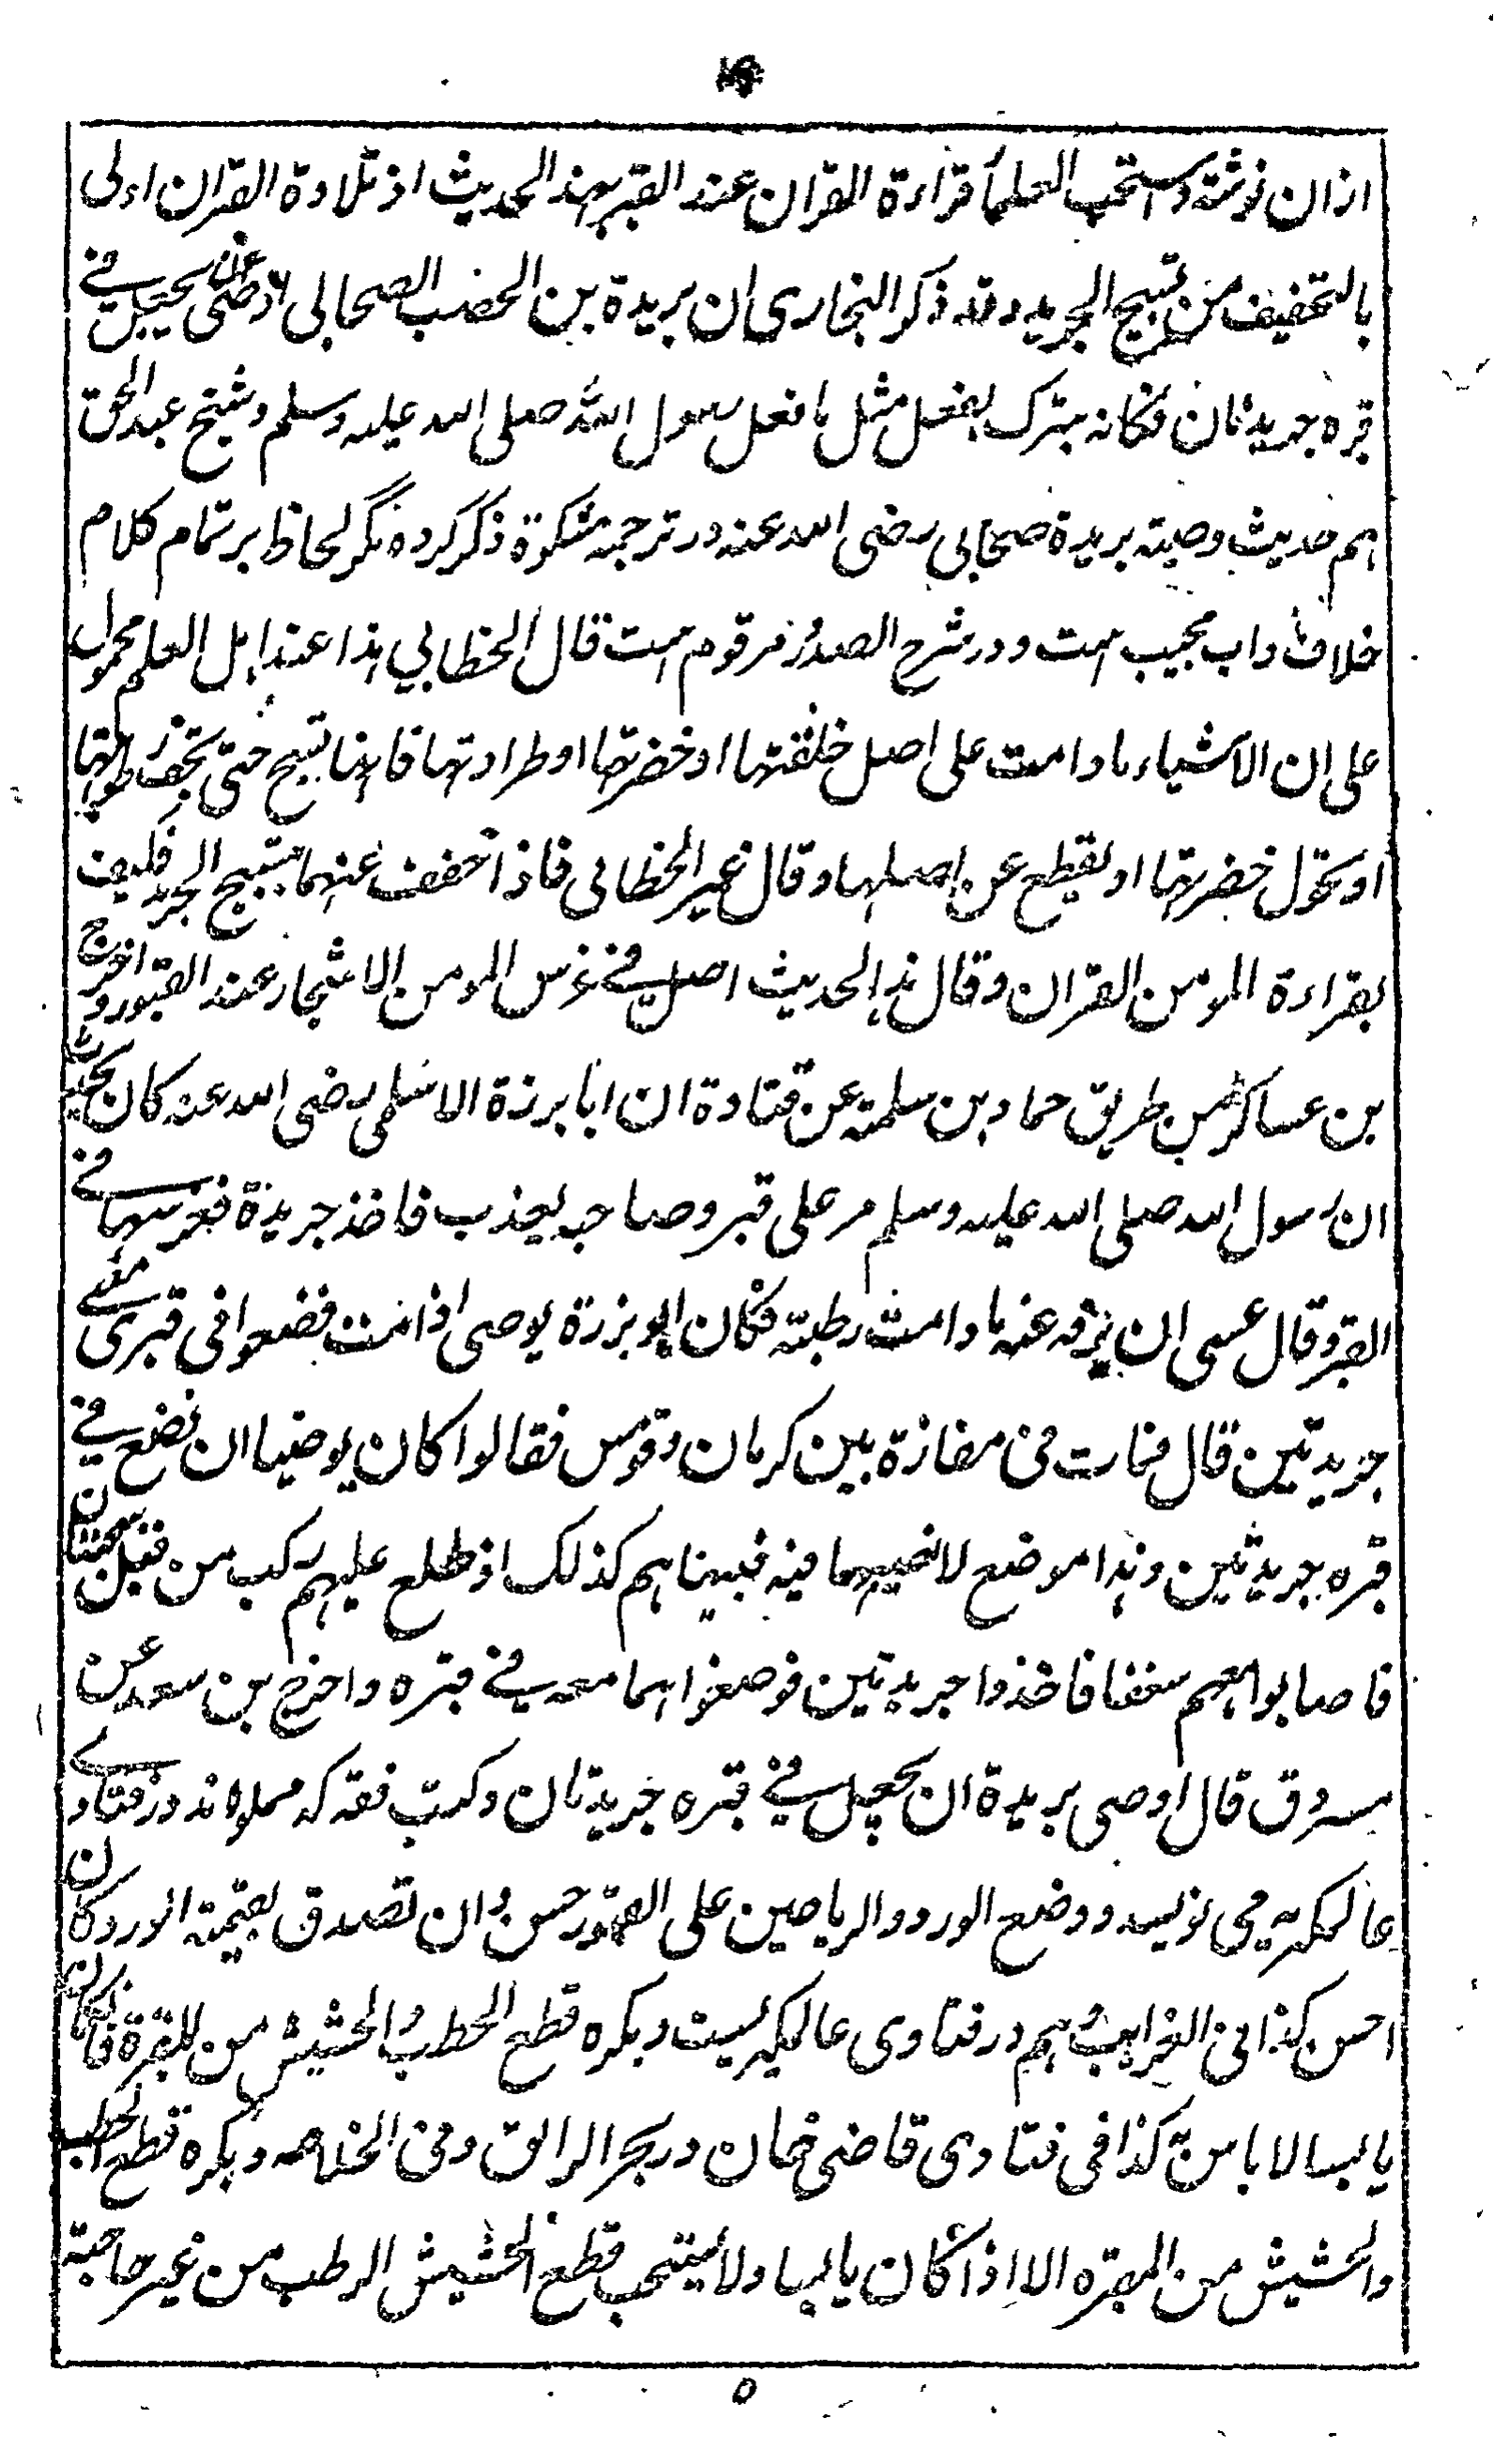 ازان نوشته واستحب العلماء قراءة القران عند القبر بهذا الحدیث اذ تلاوة القران اولی
بالتخفیف من تسبیح الجرید وقد ذکر البخاری ان بریدة بن الحضب الصحابی اوصی ان یجعل فی
قبره جریدتان فکانه تبرک بفعل مثل ما فعل رسول الله صلی الله علیه وسلم وشیخ عبد الحق
هم حدیث وصیته بریدة صحابی رضی الله عنه در ترجمه مشکوة ذکر کرده مگر لحاظ بر تمام کلام
خلاف داب مجیب است ودر شرح الصدور مرقوم است قال الخطابی هذا عند اهل العلم محمول
علی ان الاشیاء ما دامت علی اصل خلقتها او خضرتها او طراوتها فانها تسبح حتی تجف رطوبتها
او تحول خضرتها او تقطع عن اصلها وقال غیر الخطابی فاذا خفف عنهما بتسبیح الجرید فکیف
بقراءة المومن القران وقال هذا الحدیث اصل فی غرس المومن الاشجار عند القبور واخرج
بن عساکر من طریق حماد بن سلمة عن قتادة ان ابا برزة الاسلمی رضی الله عنه کان یحدث
ان رسول الله صلی الله علیه وسلم مر علی قبر وصاحبه یعذب فاخذ جریدة فغرسها فی
القبر وقال عسی ان یرفه عنه ما دامت رطبة فکان ابو برزة یوصی اذا مت فضعوا فی قبری معی
جریدتین قال فمات فی مفازة بین کرمان وقومس فقالوا کان یوصینا ان نضع فی
قبره جریدتین وهذا موضع لا نصیبهما فیه فبینا هم کذلک اذ طلع علیهم رکب من قبل سجستان
فاصابوا معهم سعفا فاخذوا جریدتین فوضعوا هما معه فی قبره واخرج بن سعد عن
مسروق قال اوصی بریدة ان یجعل فی قبره جریدتان وکتب فقه که مملو اند در فتاوی
عالمگیریه می نویسد ووضع الورد والریاحین علی القبور حسن وان تصدق بقیمة الورد کان
احسن کذا فی الغرایب وهم در فتاوی عالمگیریست ویکره قطع الحطب والحشیش من المقبرة فان کان
یابسا لا باس به کذا فی فتاوی قاضی خان ودر بحر الرائق وفی الخلاصه ویکره قطع الحطب
والحشیش من المقبره الا اذا کان یابسا ولا یستحب قطع الحشیش الرطب من غیر حاجة
٥